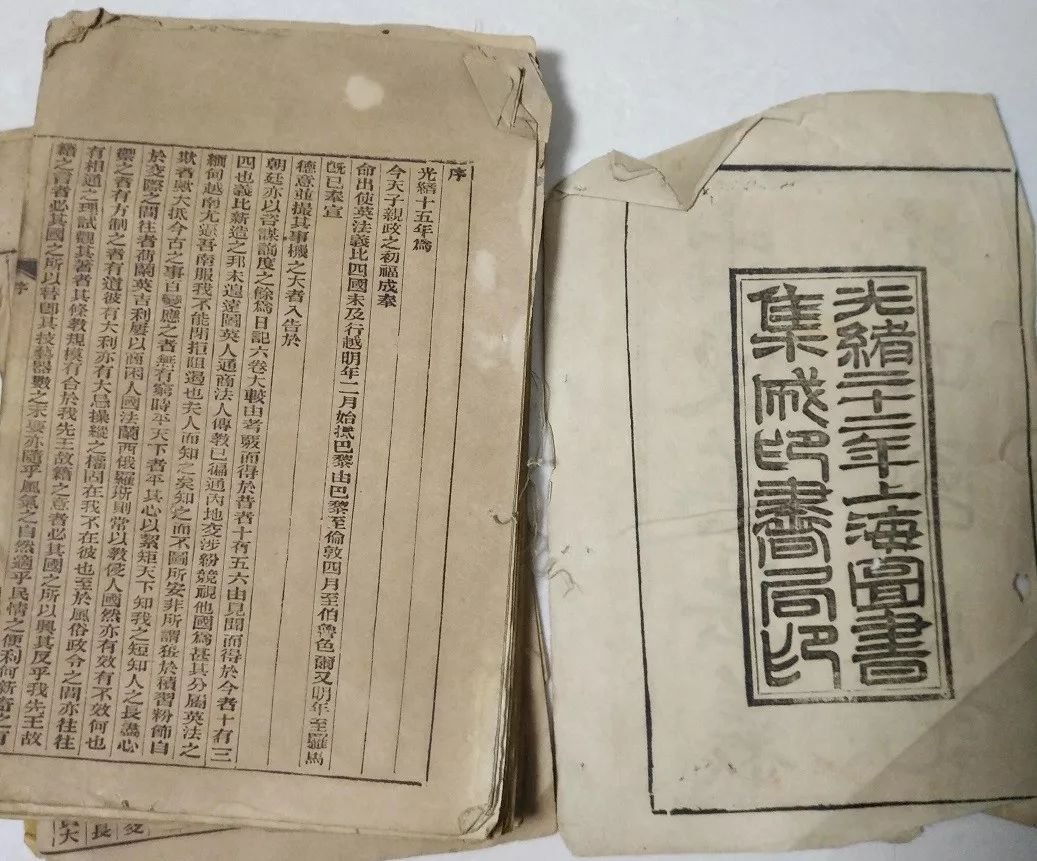 光緒二十二年上海圖書
集成印書局印
序
光緒十五年爲
今天子親政之初福成奉
命出使英法義比四國未及行越明年二月始抵巴黎由巴黎至倫敦四月至伯魯色爾又明年至羅馬
旣已奉宣
德意並撮其事機之大者入告於
朝廷亦以咨謀諏度之餘爲日記六卷大較由著覈而得於昔者十有五六由見聞而得於今者十有三
四也義比新造之邦未遑遠圖英人通商法人傳教已徧通內地交涉紛競視他國爲甚其分屬英法之
緬甸越南尤逼吾南服我不能閉拒阻遏也夫人而知之矣知之而不圖所安非所謂狃於積習粉飾自
欺者歟大抵今古之事百變應之者無有窮時平天下者平其心以絜矩天下知我之短知人之長盡心
於交際之間往者荷蘭英吉利屢以商困人國法蘭西俄羅斯則常以教侵人國然亦有效有不效何也
禦之者有方制之者有道彼有大利亦有大忌操縱之權固在我不在彼也至於風俗政令之間亦往往
有相通之理試觀其著者其條教規模有合於我先王故籍之意者必其國之所以興其反乎我先王故
籍之言者必其國之所以替卽其技藝器數之末要亦隨乎風氣之自然適乎民情之便利何新奇之有
序
交
長
大